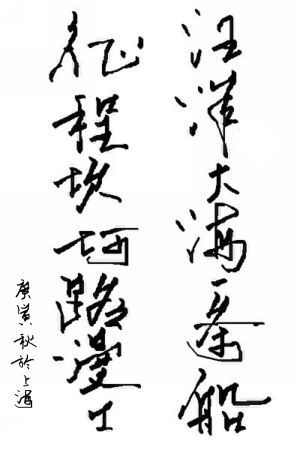 汪洋大海一船
征程坎坷路漫
庚寅秋於上海